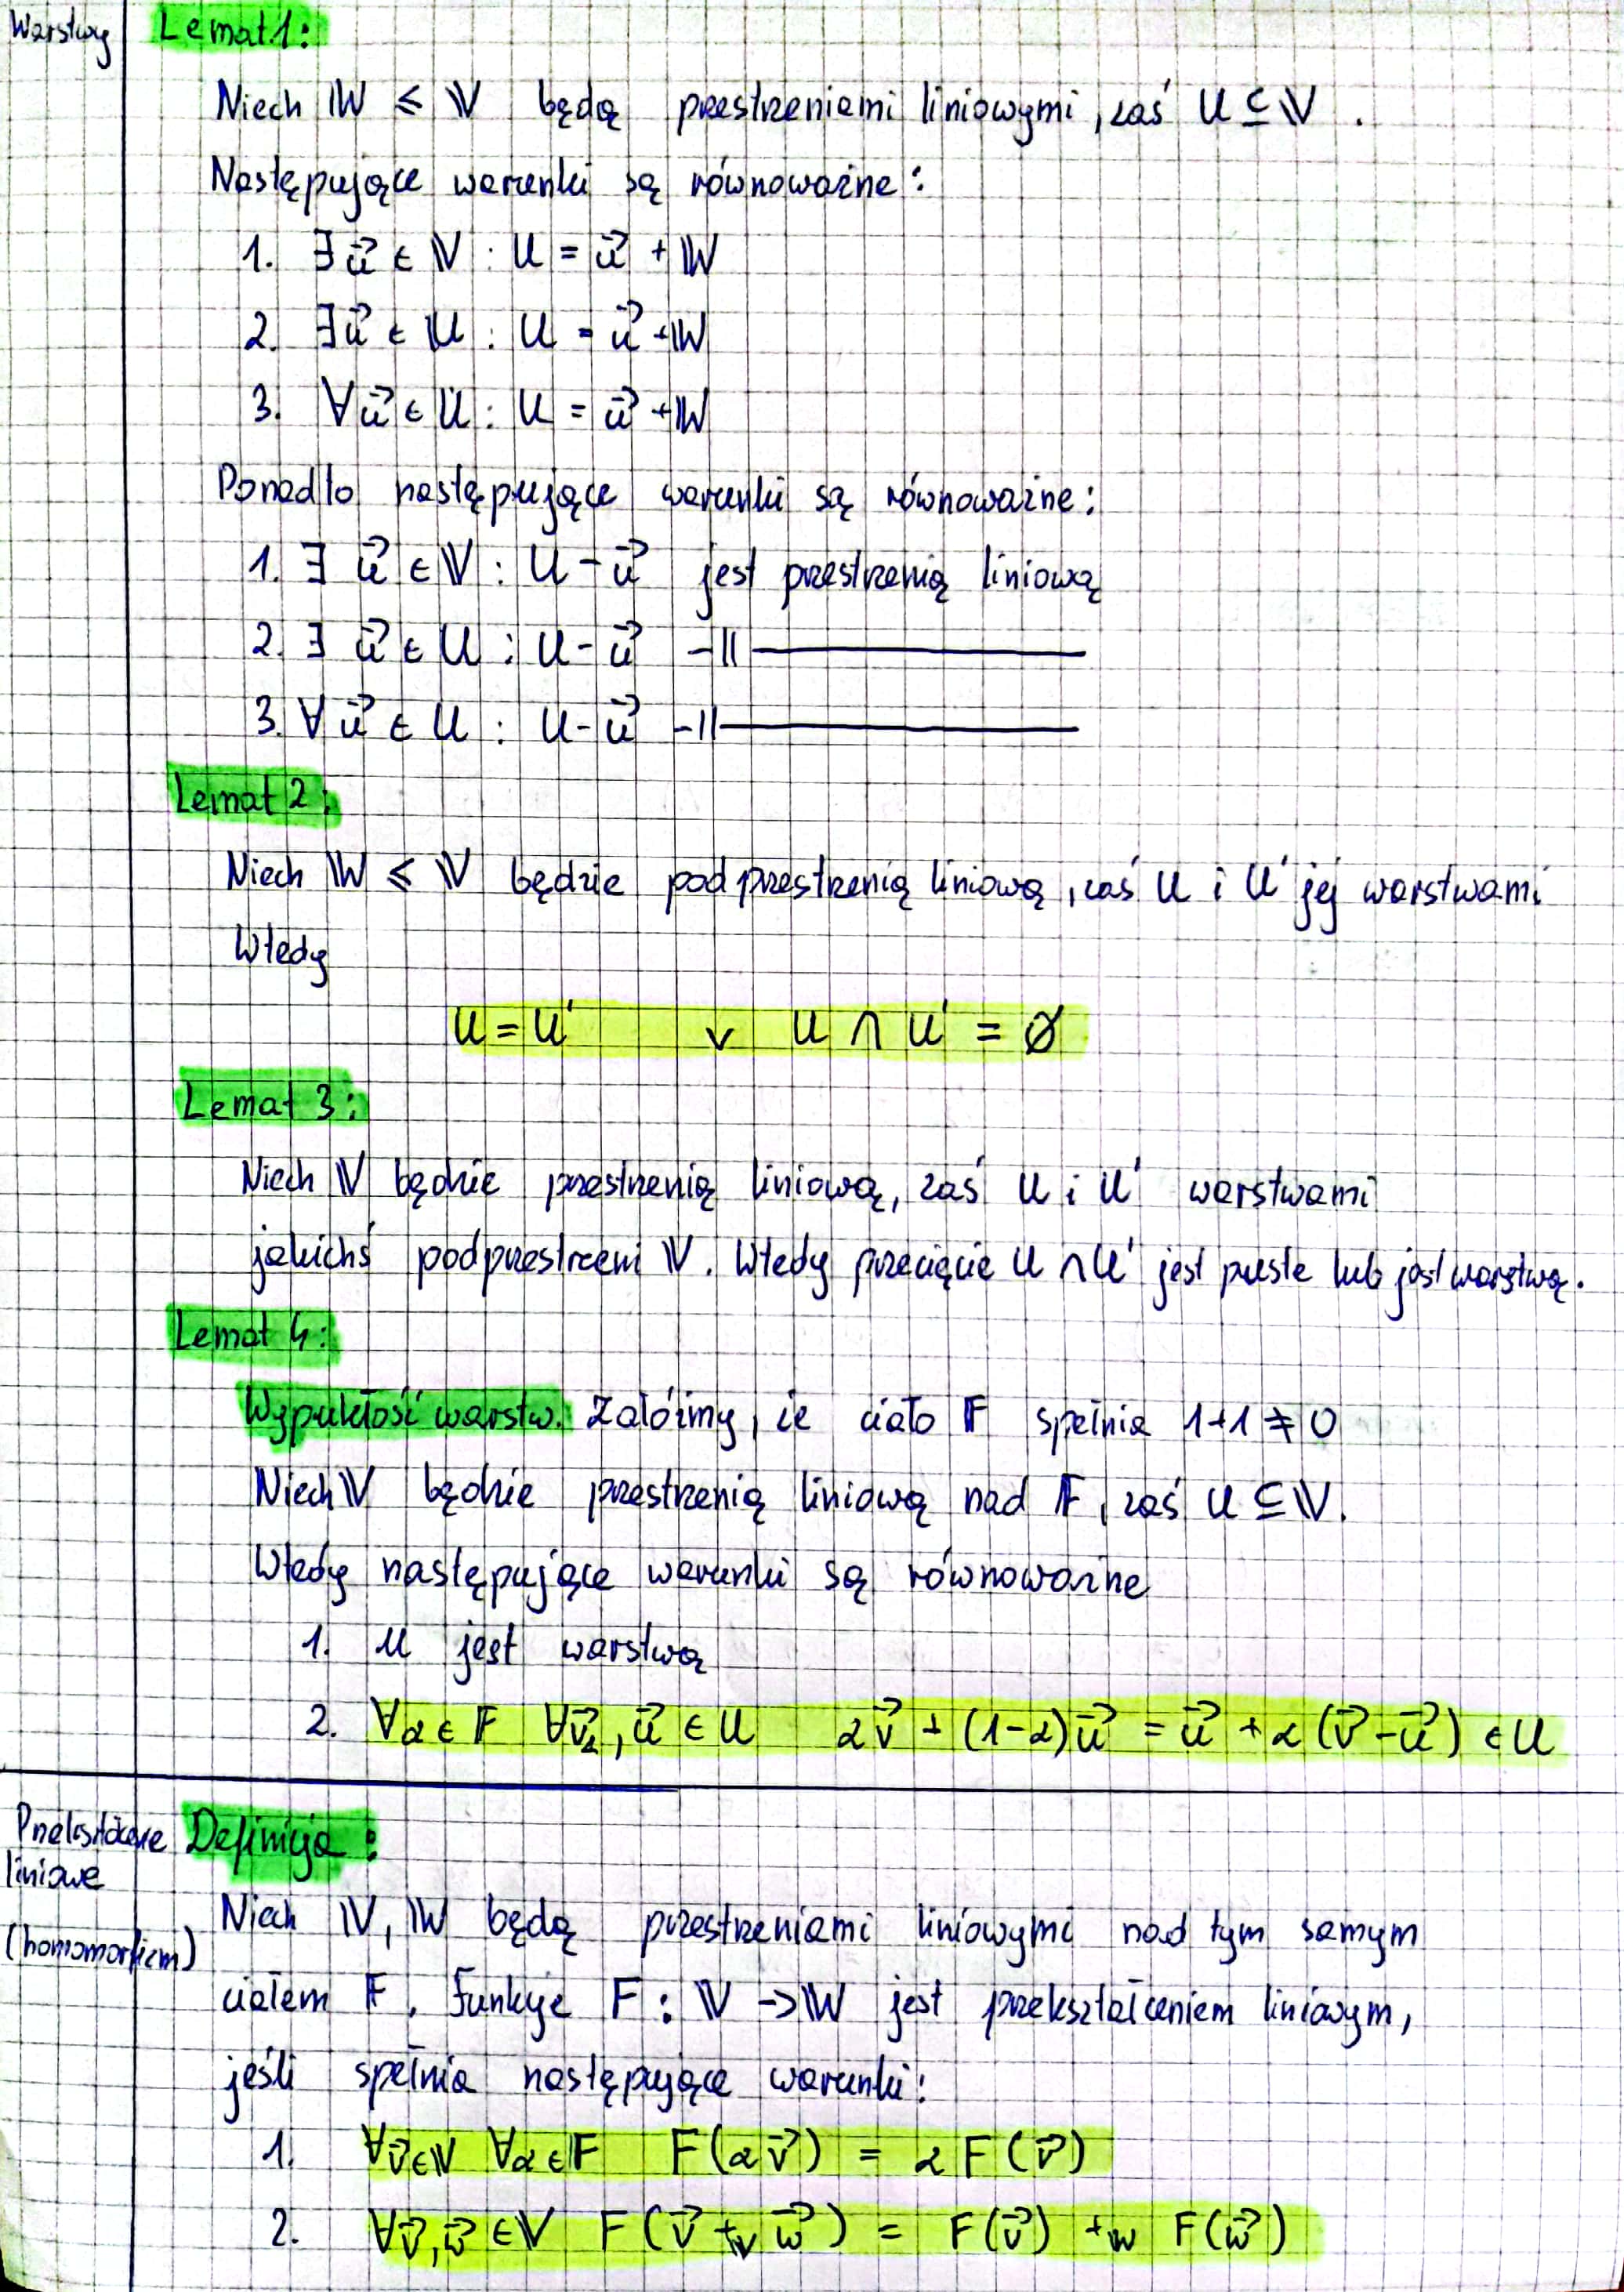 Warstwy
Lemat 1:
Niech 𝕎 ⩽ 𝕍 będą przestrzeniami liniowymi, zaś U ⊆ 𝕍 .
Następujące warunki są równoważne:
1. ∃ u⃗ ∈ 𝕍 : U = u⃗ + 𝕎
2. ∃ u⃗ ∈ U : U = u⃗ + 𝕎
3. ∀ u⃗ ∈ U : U = u⃗ + 𝕎
Ponadto następujące warunki są równoważne:
1. ∃ u⃗ ∈ 𝕍 : U - u⃗ jest przestrzenią liniową
2. ∃ u⃗ ∈ U : U - u⃗ -||-
3. ∀ u⃗ ∈ U : U - u⃗ -||-
Lemat 2:
Niech 𝕎 ⩽ 𝕍 będzie podprzestrzenią liniową, zaś U i U' jej warstwami
Wtedy
U = U' ∨ U ∩ U' = ∅
Lemat 3:
Niech 𝕍 będzie przestrzenią liniową, zaś U i U' warstwami
jakichś podprzestrzeni 𝕍. Wtedy przecięcie U ∩ U' jest puste lub jest warstwą.
Lemat 4:
Wypukłość warstw. Załóżmy, że ciało 𝔽 spełnia 1+1 ≠ 0
Niech 𝕍 będzie przestrzenią liniową nad 𝔽, zaś U ⊆ 𝕍.
Wtedy następujące warunki są równoważne
1. U jest warstwą
2. ∀α ∈ 𝔽 ∀v⃗, u⃗ ∈ U αv⃗ + (1-α)u⃗ = u⃗ + α(v⃗ - u⃗) ∈ U
Przekształcenie
liniowe
(homomorfizm)
Definicja:
Niech 𝕍, 𝕎 będą przestrzeniami liniowymi nad tym samym
ciałem 𝔽. Funkcja F : 𝕍 -> 𝕎 jest przekształceniem liniowym,
jeśli spełnia następujące warunki:
1. ∀v⃗∈𝕍 ∀α∈𝔽 F(αv⃗) = αF(v⃗)
2. ∀v⃗,w⃗ ∈ 𝕍 F(v⃗ +ᵥ w⃗) = F(v⃗) +w F(w⃗)